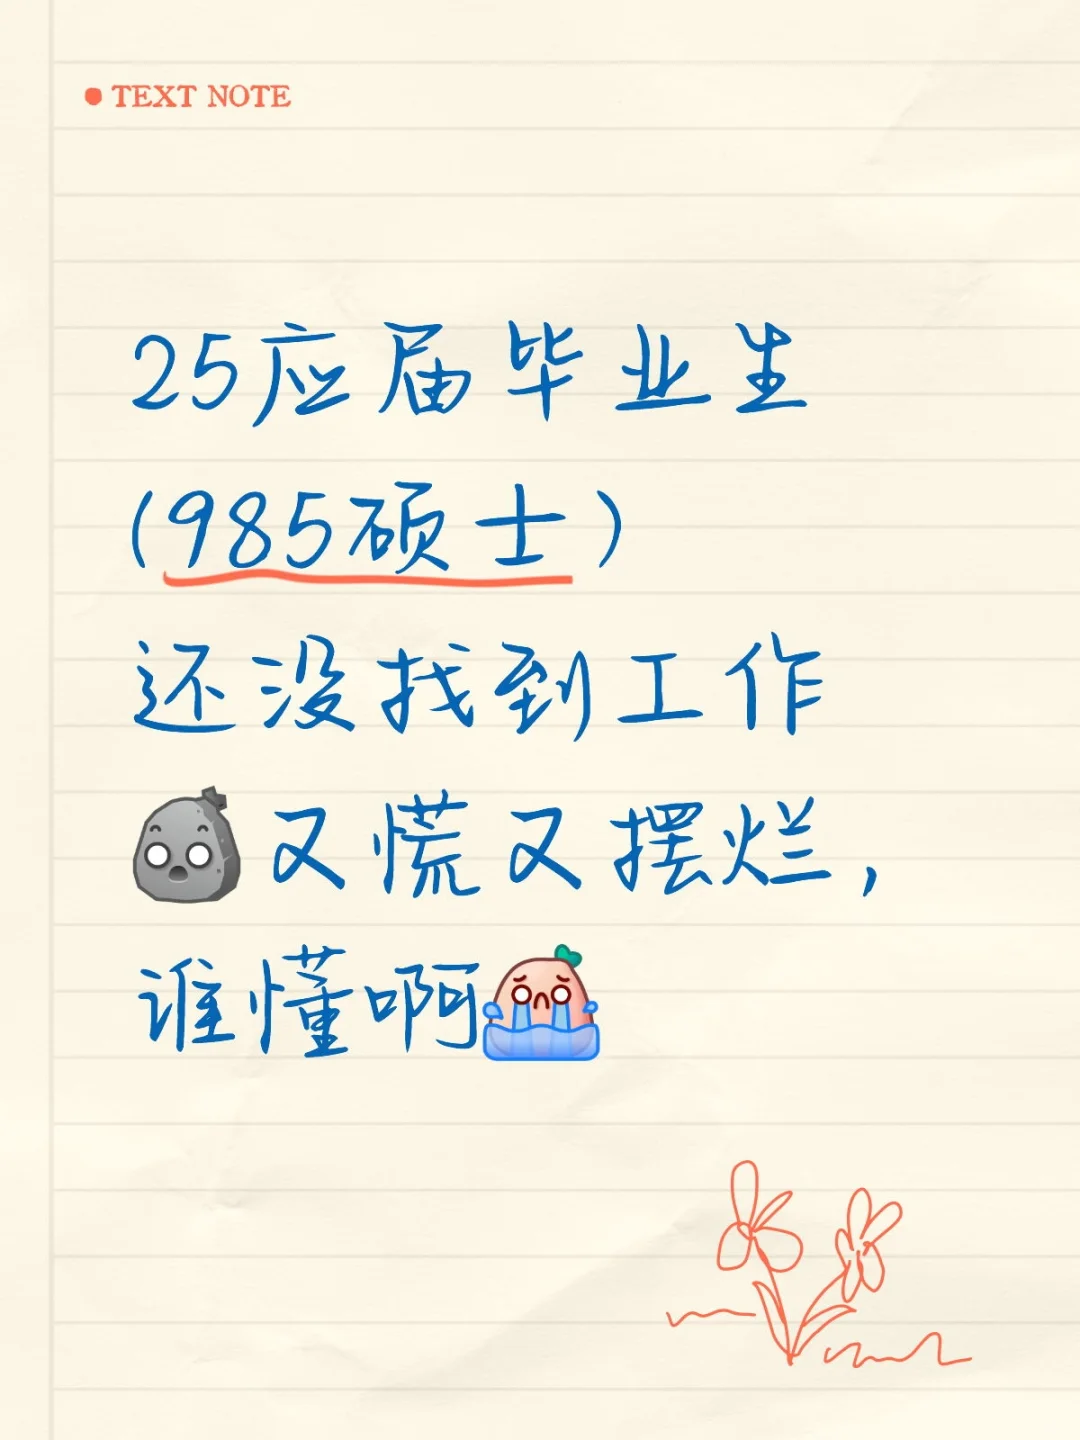 TEXT NOTE
25应届毕业生
(985硕士)
还没找到工作
又慌又摆烂,
谁懂啊